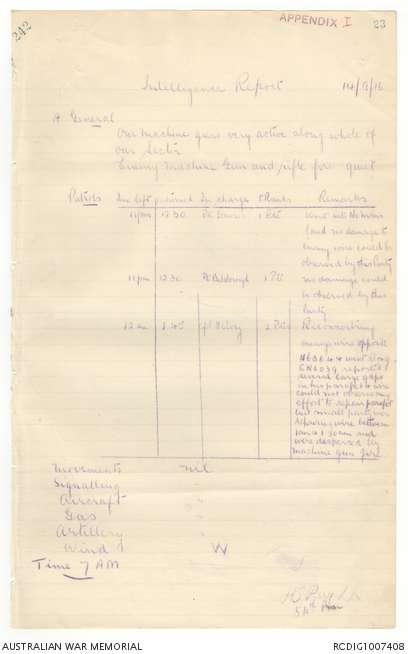 242
APPENDIX I
23
Intelligence Report
14/9/16
A General
Our machine guns very active along whole of
our Sector
Enemy machine Gun and rifle fire quiet
Patrols Time left returned In charge Ranks Remarks
11pm 12.30 went into No mans
land no damage to
enemy wire could be
observed by this Party
11pm 12.30 no damage could
be observed by this
Party
12 am 1.45 Reconnoitring
enemys wire opposite
went along
reports
several large gaps
in his parapet & wire
could not observe any
effort to repair parapet
but small party were
repairing wire between
and
were dispersed by
machine gun fire
Movements nil
Signalling "
Aircraft "
Gas "
Artillery "
Wind W
Time 7 AM
54th Bn
AUSTRALIAN WAR MEMORIAL
RCDIG1007408